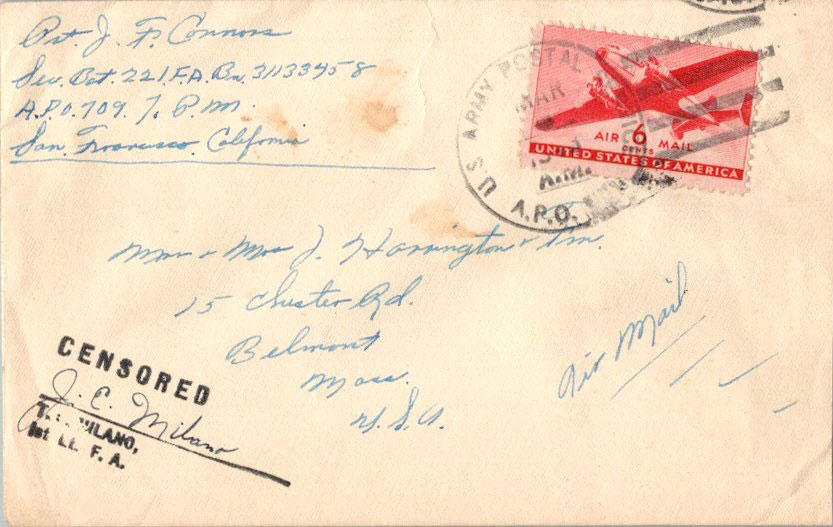 Pvt. J. F. Connors
Ser. Bat. 221 F.A. Bn. 31133458
A.P.O. 709. % P.M.
San Francisco, California
U.S. ARMY POSTAL SERVICE
MAR
A.M.
A.P.O.
AIR 6 MAIL
CENTS
UNITED STATES OF AMERICA
Mr. & Mrs J. Harrington &
15 Chester Rd.
Belmont
Mass.
U.S.A.
Air Mail
CENSORED
J. C. Milano
MILANO,
1st Lt. F. A.